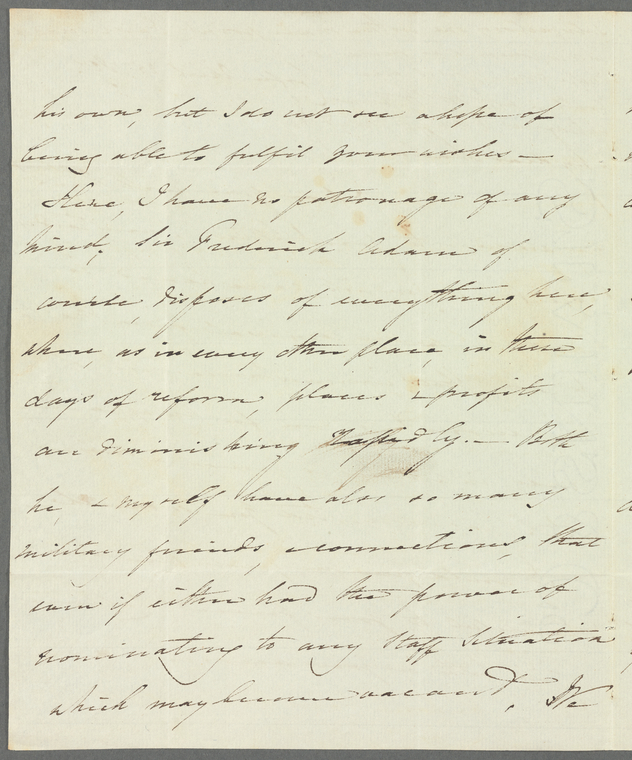 his own, but I do not see a hope of
being able to fulfil your wishes —
Here, I have no patronage of any
kind; Sir Frederick Adam of
course, disposes of everything here,
where, as in every other place, in these
days of reform, places & profits
are diminishing rapidly. — Both
he, & myself have also so many
military friends, & connections, that
even if either had the power of
nominating to any Staff Situation
which may become vacant, We